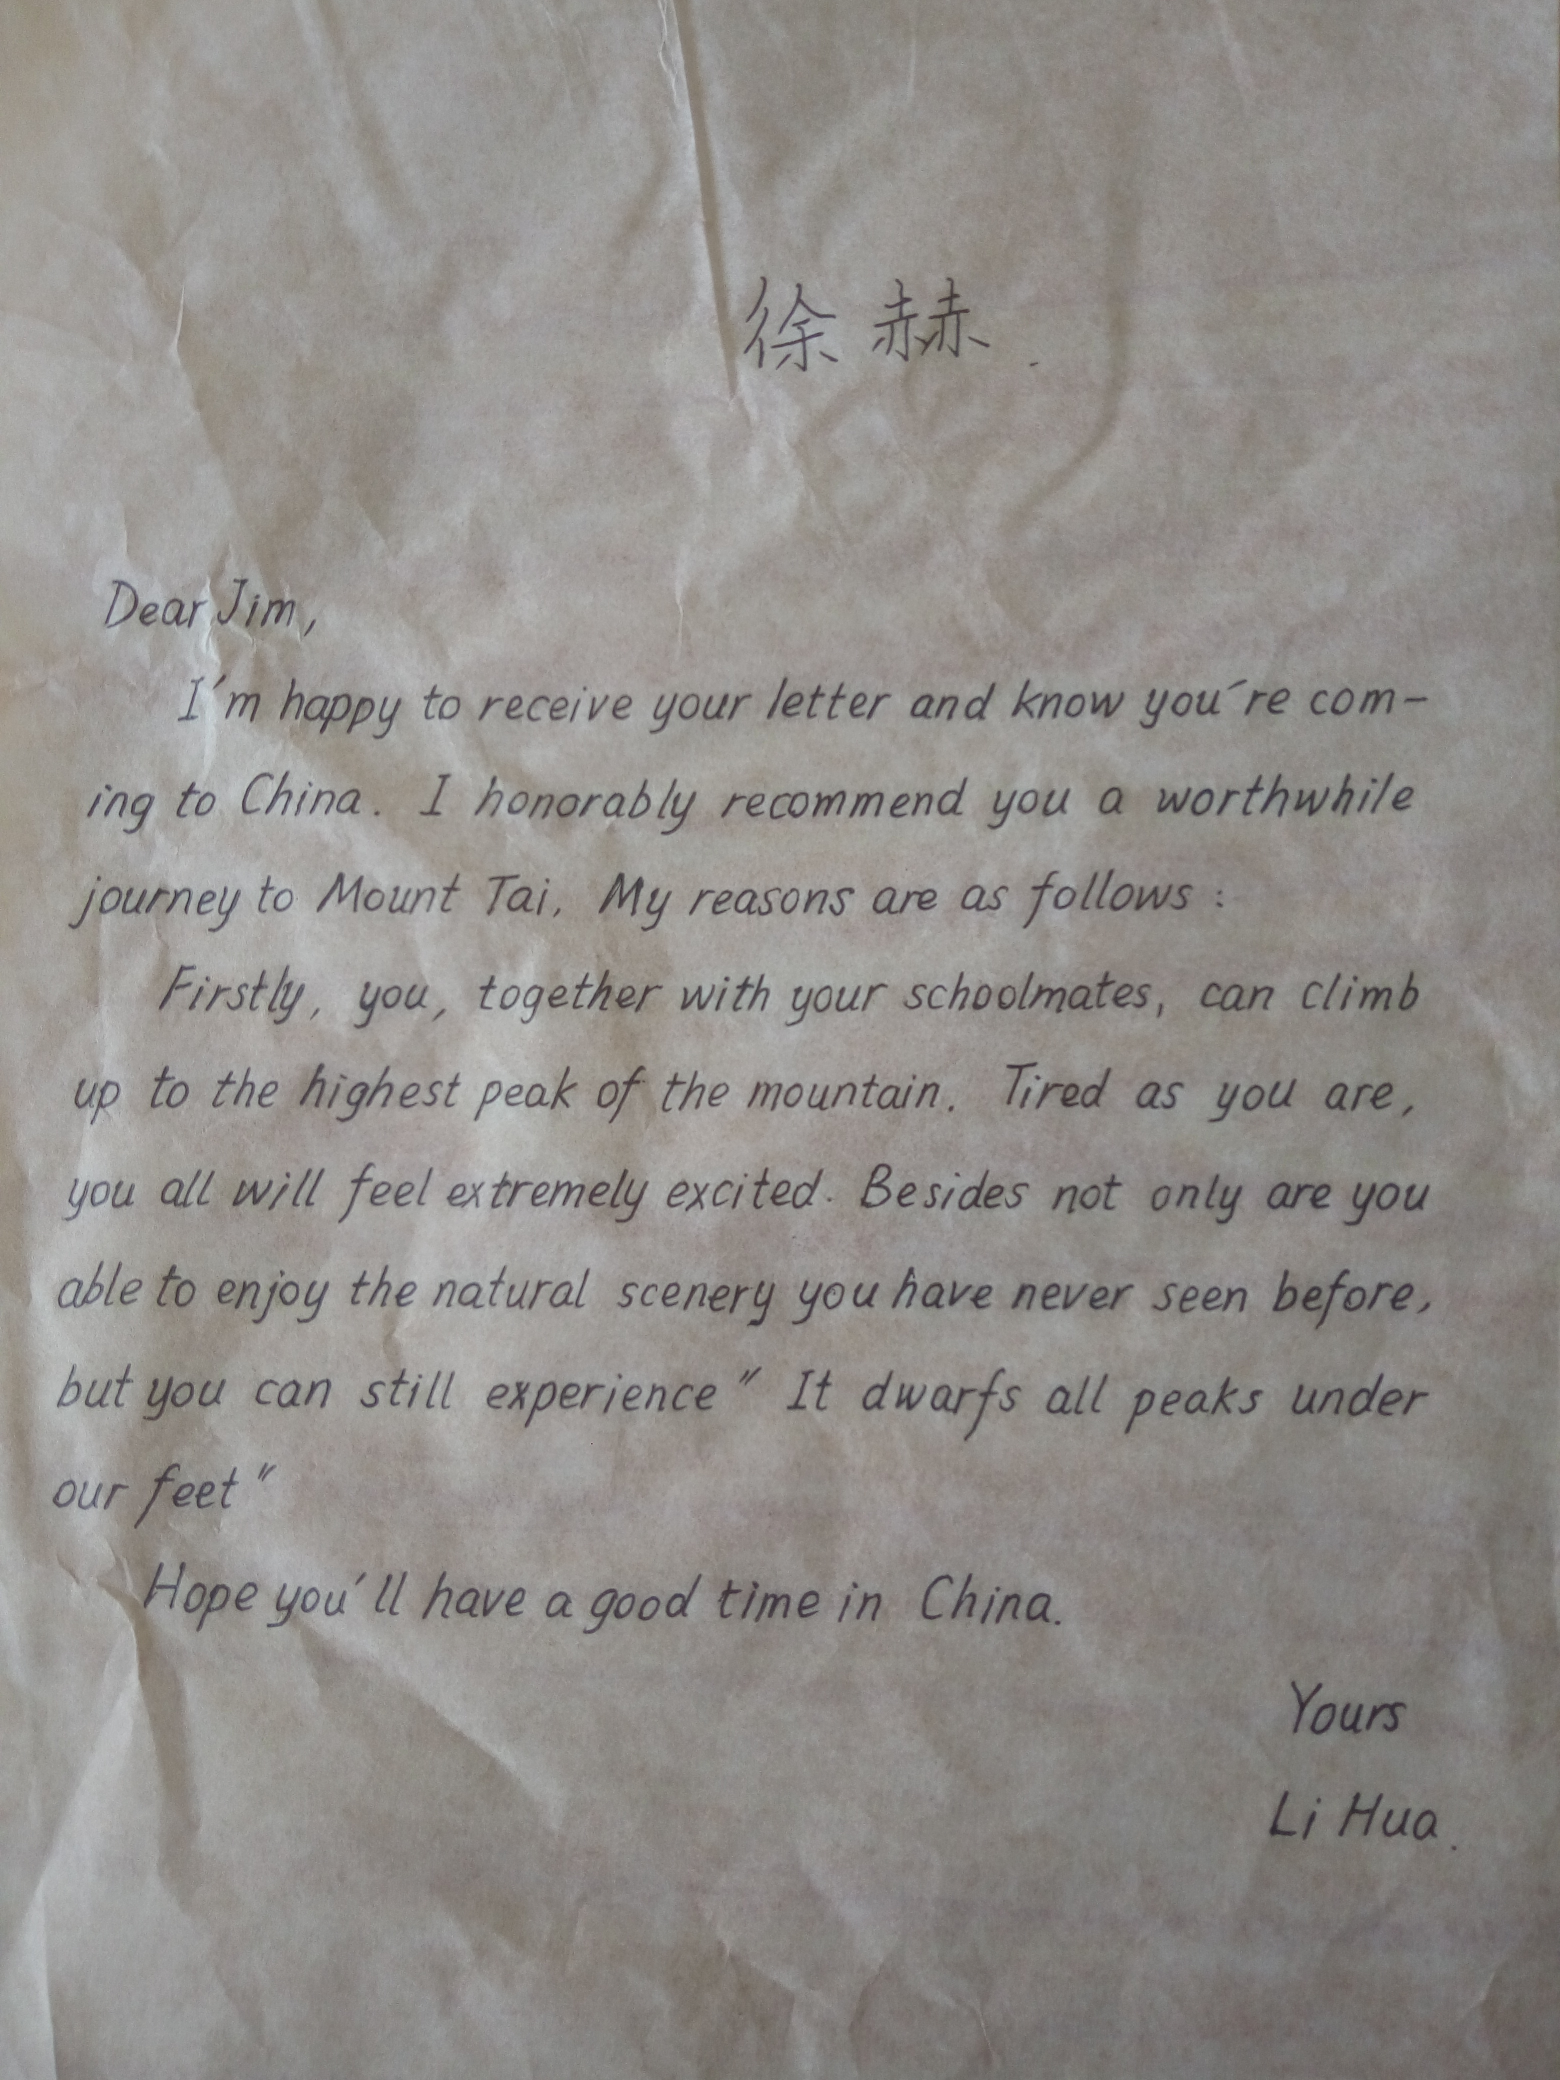 徐赫.
Dear Jim,
I'm happy to receive your letter and know you're com-
ing to China. I honorably recommend you a worthwhile
journey to Mount Tai. My reasons are as follows:
Firstly, you, together with your schoolmates, can climb
up to the highest peak of the mountain. Tired as you are,
you all will feel extremely excited. Besides not only are you
able to enjoy the natural scenery you have never seen before,
but you can still experience " It dwarfs all peaks under
our feet"
Hope you'll have a good time in China.
Yours
Li Hua.